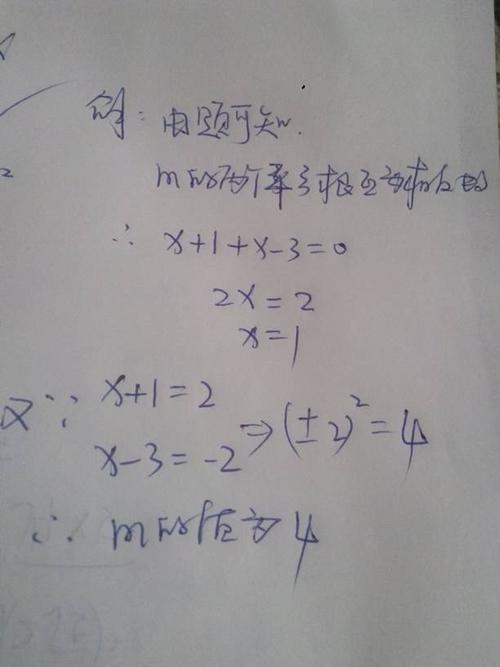 解：由题可知.
m的两个平方根互为相反数
∴ x+1+x-3=0
2x=2
x=1
又∵ x+1=2
x-3=-2 ⇒ (±2)²=4
∴ m的值为4